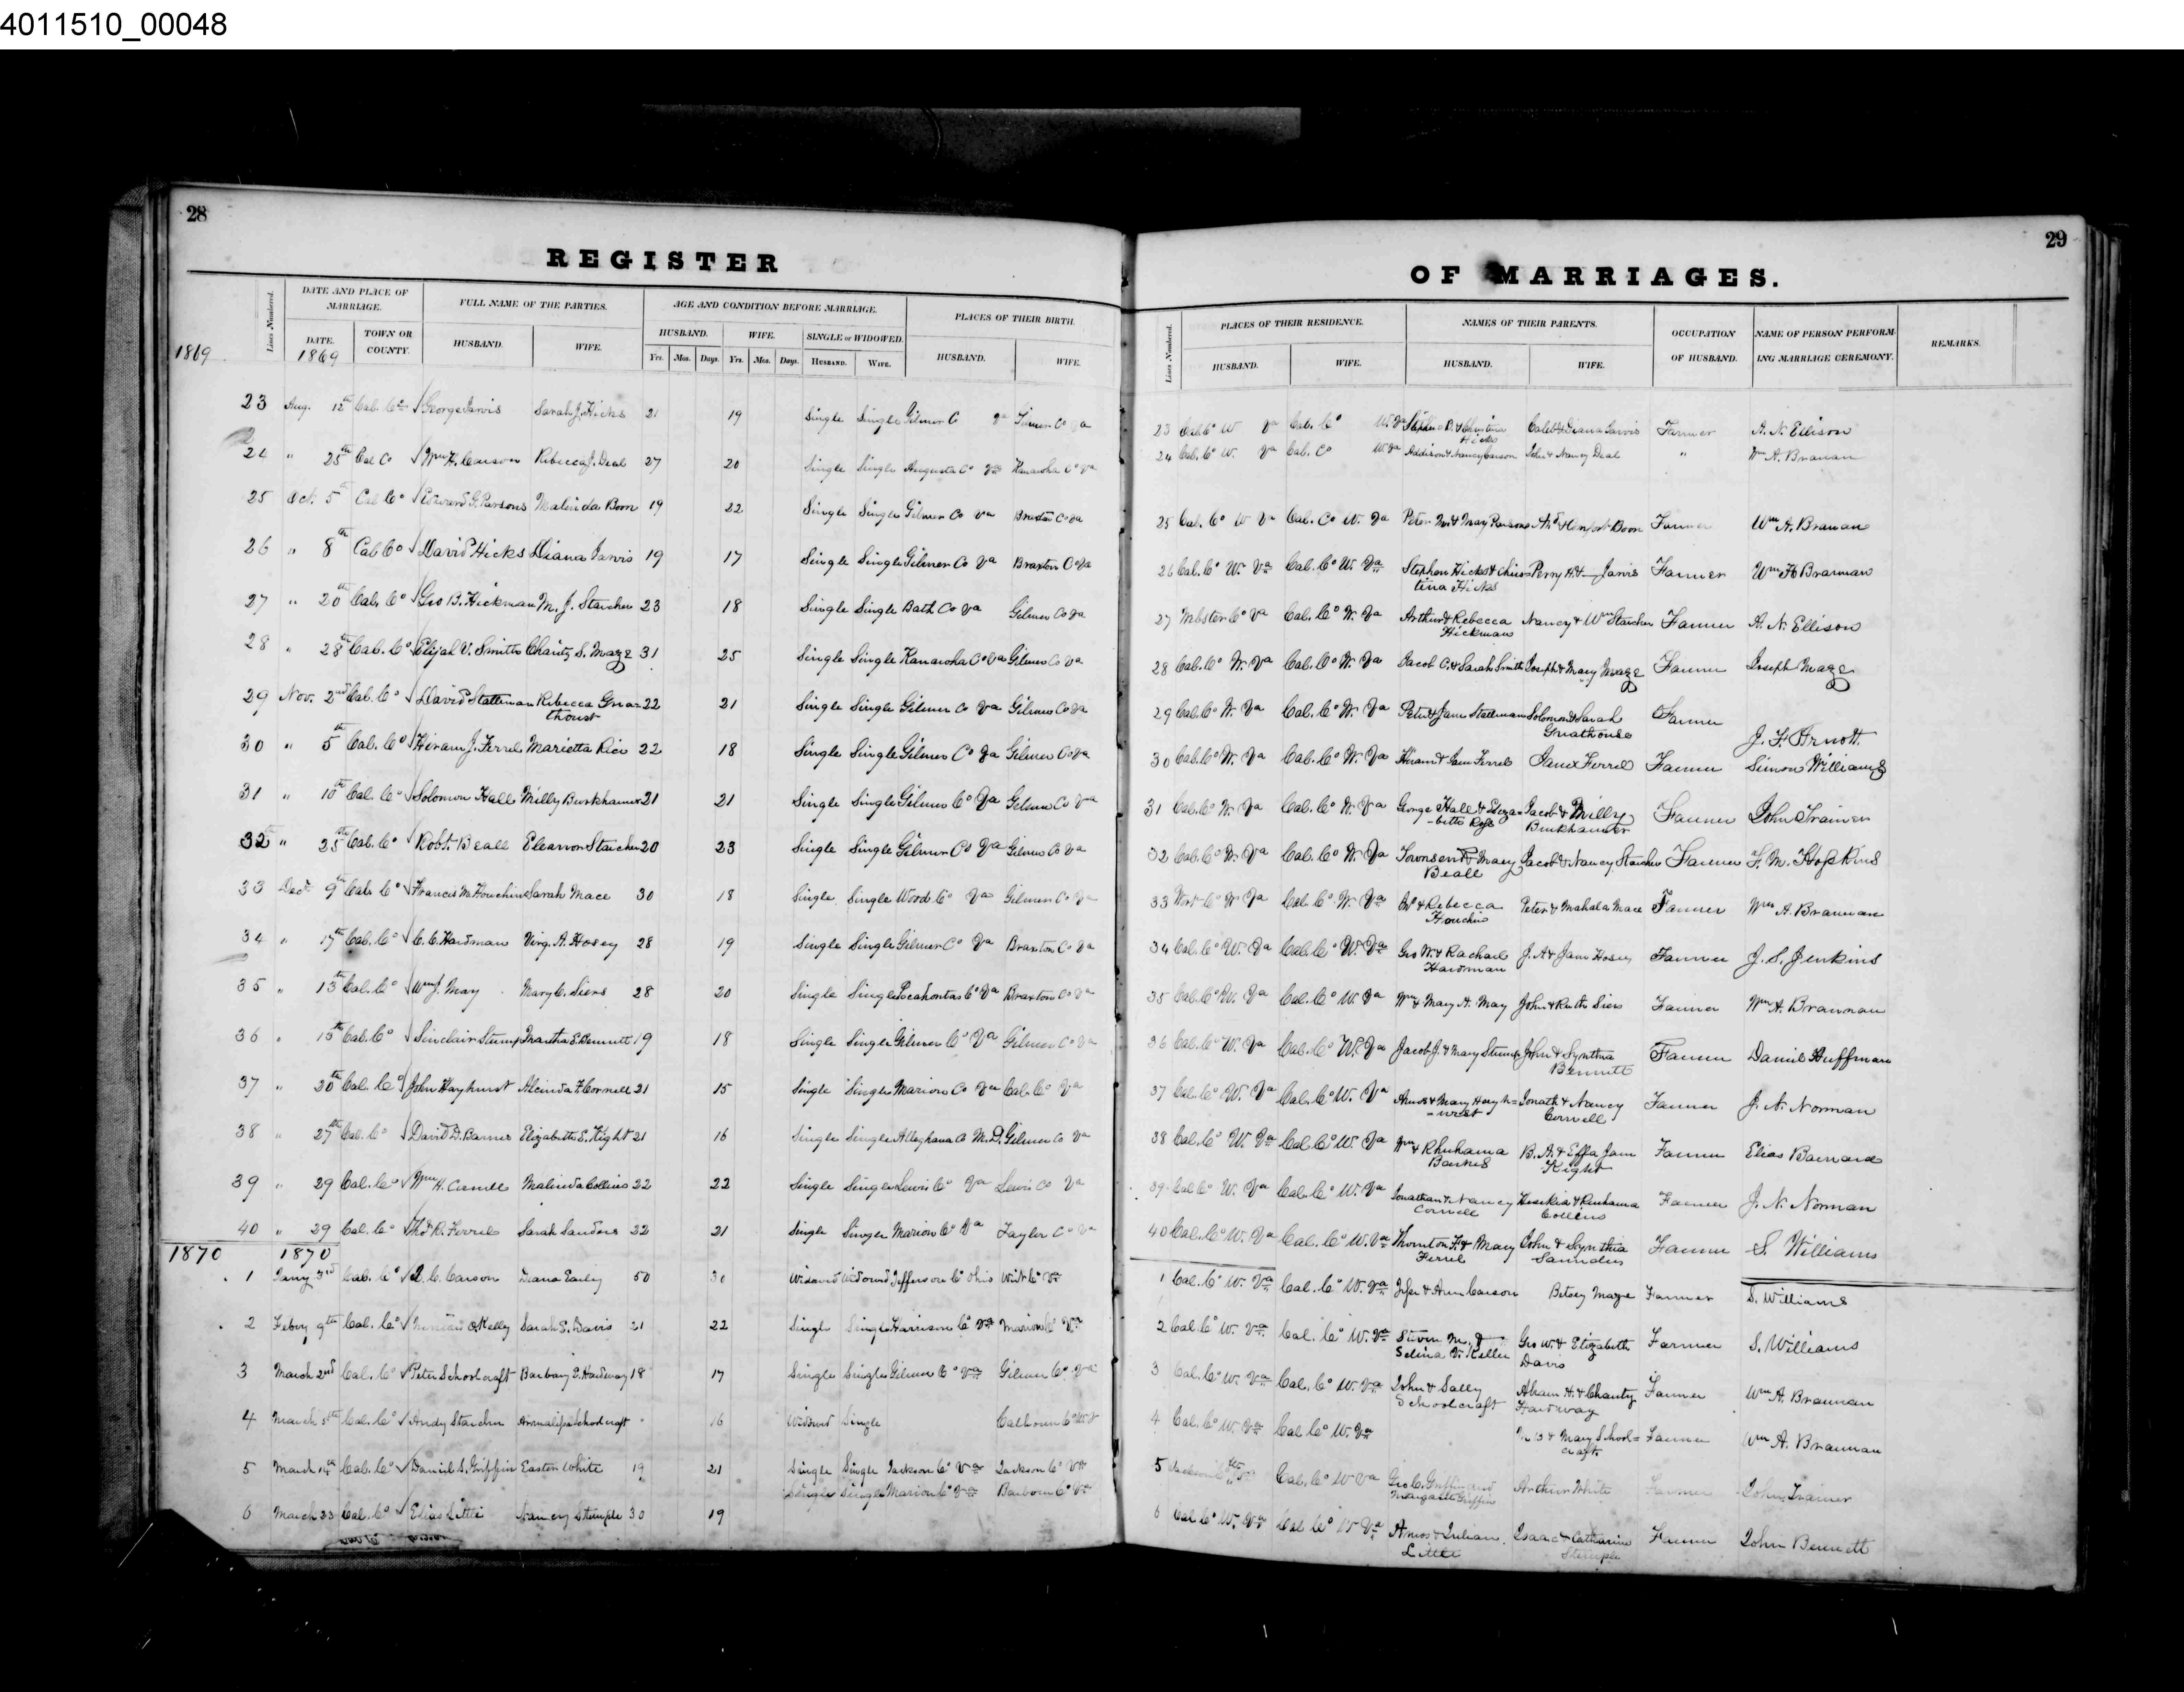 4011510_00048
28
REGISTER
Lines Numbered.
DATE AND PLACE OF MARRIAGE.
FULL NAME OF THE PARTIES.
AGE AND CONDITION BEFORE MARRIAGE.
PLACES OF THEIR BIRTH.
DATE.
TOWN OR COUNTY.
HUSBAND.
WIFE.
HUSBAND.
WIFE.
SINGLE or WIDOWED.
HUSBAND.
WIFE.
1869
1869
Yrs. Mos. Days. Yrs. Mos. Days. HUSBAND. WIFE.
23 Aug. 12th Cal. Co George Jarvis Sarah J. Hicks 21 19 Single Single Gilmer C Va Gilmer Co Va
24 " 25th Cal Co Wm H. Carson Rebecca J. Deal 27 20 Single Single Augusta Co Va Kanawha Co Va
25 Oct. 5th Cal Co Edward G. Parsons Malinda Boon 19 22 Single Single Gilmer Co Va Braxton Co Va
26 " 8th Cal Co David Hicks Diana Jarvis 19 17 Single Single Gilmer Co Va Braxton Co Va
27 " 20th Cal. Co Geo B. Hickman M. J. Starcher 23 18 Single Single Bath Co Va Gilmer Co Va
28 " 28th Cal. Co Elijah V. Smith Charity S. Maze 31 25 Single Single Kanawha Co Va Gilmer Co Va
29 Nov. 2nd Cal. Co David Stalleman Rebecca 22 21 Single Single Gilmer Co Va Gilmer Co Va
30 " 5th Cal. Co Hiram J. Ferrel Marietta Rice 22 18 Single Single Gilmer Co Va Gilmer Co Va
31 " 10th Cal. Co Solomon Hall Milly Burkhamer 21 21 Single Single Gilmer Co Va Gilmer Co Va
32 " 25th Cal. Co Robt. Beall Eleanor Starcher 20 23 Single Single Gilmer Co Va Gilmer Co Va
33 Dec. 9th Cal. Co Francis M. Houchin Sarah Mace 30 18 Single Single Wood Co Va Gilmer Co Va
34 " 17th Cal. Co C. C. Hardman Virg. A. Hosey 28 19 Single Single Gilmer Co Va Braxton Co Va
35 " 13th Cal. Co Wm J. May Mary C. Siers 28 20 Single Single Pocahontas Co Va Braxton Co Va
36 " 15th Cal. Co Sinclair Stump Martha S. Bennett 19 18 Single Single Gilmer Co Va Gilmer Co Va
37 " 20th Cal. Co John Hayhurst Alcinda F. Cornell 21 15 Single Single Marion Co Va Cal. Co Va
38 " 27th Cal. Co David D. Barnes Elizabeth E. Kight 21 16 Single Single Alleghana Co M.D. Gilmer Co Va
39 " 29 Cal. Co Wm H. Cornell Malinda Collins 22 22 Single Single Lewis Co Va Lewis Co Va
40 " 29 Cal. Co R. Ferrel Sarah Sanders 22 21 Single Single Marion Co Va Taylor Co Va
1870 1870
1 Jany 3rd Cal. Co C. Carson Diana 50 30 Widowed Widowed Jefferson Co Ohio Wirt Co Va
2 Feby 9th Cal. Co Kelly Sarah E. Davis 21 22 Single Single Harrison Co Va Marion Co Va
3 March 2nd Cal. Co Peter Schoolcraft Barbary E. Hardway 18 17 Single Single Gilmer Co Va Gilmer Co Va
4 March Cal. Co Andy Starcher Schoolcraft 16 Widowed Single Calhoun Co
5 March 14th Cal. Co Daniel S. Griffin Easter White 19 21 Single Single Jackson Co Va Jackson Co Va
6 March 23 Cal. Co Elias Little Nancy Stemple 30 19 Single Single Marion Co Va Barbour Co Va
29
OF MARRIAGES.
Lines Numbered.
PLACES OF THEIR RESIDENCE.
NAMES OF THEIR PARENTS.
OCCUPATION OF HUSBAND.
NAME OF PERSON PERFORMING MARRIAGE CEREMONY.
REMARKS.
HUSBAND.
WIFE.
HUSBAND.
WIFE.
23 Cal. Co W Va Cal. Co W. Va Stephen & Christina Hicks Caleb & Diana Jarvis Farmer A. N. Ellison
24 Cal. Co W. Va Cal. Co W. Va Addison & Nancy Carson John & Nancy Deal " Wm A. Branan
25 Cal. Co W Va Cal. Co W. Va Peter & May Parsons Boon Farmer Wm A. Branan
26 Cal. Co W. Va Cal. Co W. Va Stephen Hicks & Christina Hicks Perry H. & Jarvis Farmer Wm H Brannan
27 Webster Co Va Cal. Co W. Va Arthur & Rebecca Hickman Nancy & Wm Starcher Farmer A. N. Ellison
28 Cal. Co W. Va Cal. Co W. Va Jacob C. & Sarah Smith Joseph & Mary Maze Farmer Joseph Maze
29 Cal. Co W. Va Cal. Co W. Va Peter & Jane Stalleman Solomon & Sarah Greathouse Farmer J. F. Arnott
30 Cal. Co W. Va Cal. Co W. Va Hiram & Jane Ferrel Jane Ferrel Farmer Simon Williams
31 Cal. Co W. Va Cal. Co W. Va George Hall & Jacob & Milly Burkhamer Farmer John Trainer
32 Cal. Co W. Va Cal. Co W. Va Townsend & Mary Beall Jacob & Nancy Starcher Farmer F. M. Hopkins
33 Wirt Co W Va Cal. Co W. Va & Rebecca Houchin Peter & Mahala Mace Farmer Wm A. Brannan
34 Cal. Co W. Va Cal. Co W. Va Geo W. & Rachael Hardman J. A & Jane Hosey Farmer J. S. Jenkins
35 Cal. Co W. Va Cal. Co W. Va Wm & Mary A. May John & Ruth Siers Farmer Wm A. Brannan
36 Cal. Co W. Va Cal. Co W. Va Jacob J. & Mary Stump John & Synthia Bennett Farmer Daniel Huffman
37 Cal. Co W. Va Cal. Co W. Va & Mary Hayhurst Jonath & Nancy Cornell Farmer J. N. Norman
38 Cal. Co W. Va Cal. Co W. Va Wm & Rhuhama Barnes B. A. & Effa Jane Kight Farmer Elias Barnard
39 Cal. Co W. Va Cal. Co W. Va Jonathan & Nancy Cornell Hesekia & Ruhama Collins Farmer J. N. Norman
40 Cal. Co W. Va Cal. Co W. Va Thornton F. & Mary Ferrel John & Synthia Saunders Farmer S. Williams
1 Cal. Co W. Va Cal. Co W. Va & Ann Carson Betsey Maze Farmer S. Williams
2 Cal. Co W. Va Cal. Co W. Va & Selina V. Geo W. & Elizabeth Davis Farmer S. Williams
3 Cal. Co W. Va Cal. Co W. Va John & Sally Schoolcraft Abram H. & Charity Hardway Farmer Wm A. Brannan
4 Cal. Co W. Va Cal. Co W. Va & Mary Schoolcraft Farmer Wm A. Brannan
5 Jackson Cal. Co W Va Geo C. Griffin and Margaret Griffin Arthur White Farmer John Trainer
6 Cal Co W. Va Cal Co W Va Amos & Julian Little Isaac & Catharine Stemple Farmer John Bennett